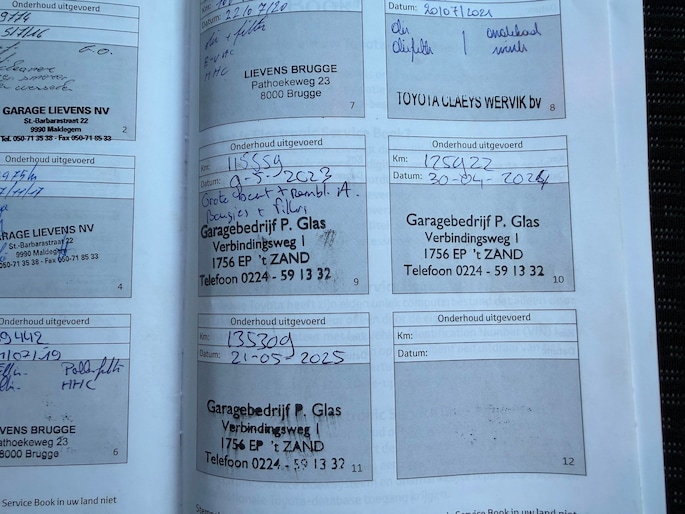 Onderhoud uitgevoerd
GARAGE LIEVENS NV
St.-Barbarastraat 22
9990 Maldegem
Tel. 050-71 35 38 - Fax 050-71 85 33
2
Onderhoud uitgevoerd
RAGE LIEVENS NV
St.-Barbarastraat 22
9990 Maldegem
050-71 35 38 - Fax 050-71 85 33
4
Onderhoud uitgevoerd
9442
/07/19
Pollenfilter
HHC
VENS BRUGGE
athoekeweg 23
8000 Brugge
6
Service Book in uw land niet
Km:
Datum: 22/07/20
olie + filter
HHC
LIEVENS BRUGGE
Pathoekeweg 23
8000 Brugge
7
Datum: 20/07/2021
olie
oliefilter
TOYOTA CLAEYS WERVIK bv
8
Onderhoud uitgevoerd
Km: 115559
Datum: 9-5-2023
Grote beurt +
Bougies + filters
Garagebedrijf P. Glas
Verbindingsweg 1
1756 EP 't ZAND
Telefoon 0224 - 59 13 32
9
Onderhoud uitgevoerd
Km: 125922
Datum: 30-04-2024
Garagebedrijf P. Glas
Verbindingsweg 1
1756 EP 't ZAND
Telefoon 0224 - 59 13 32
10
Onderhoud uitgevoerd
Km: 135309
Datum: 21-05-2025
Garagebedrijf P. Glas
Verbindingsweg 1
1756 EP 't ZAND
Telefoon 0224 - 59 13 32
11
Onderhoud uitgevoerd
Km:
Datum:
12
Service Book in uw land niet